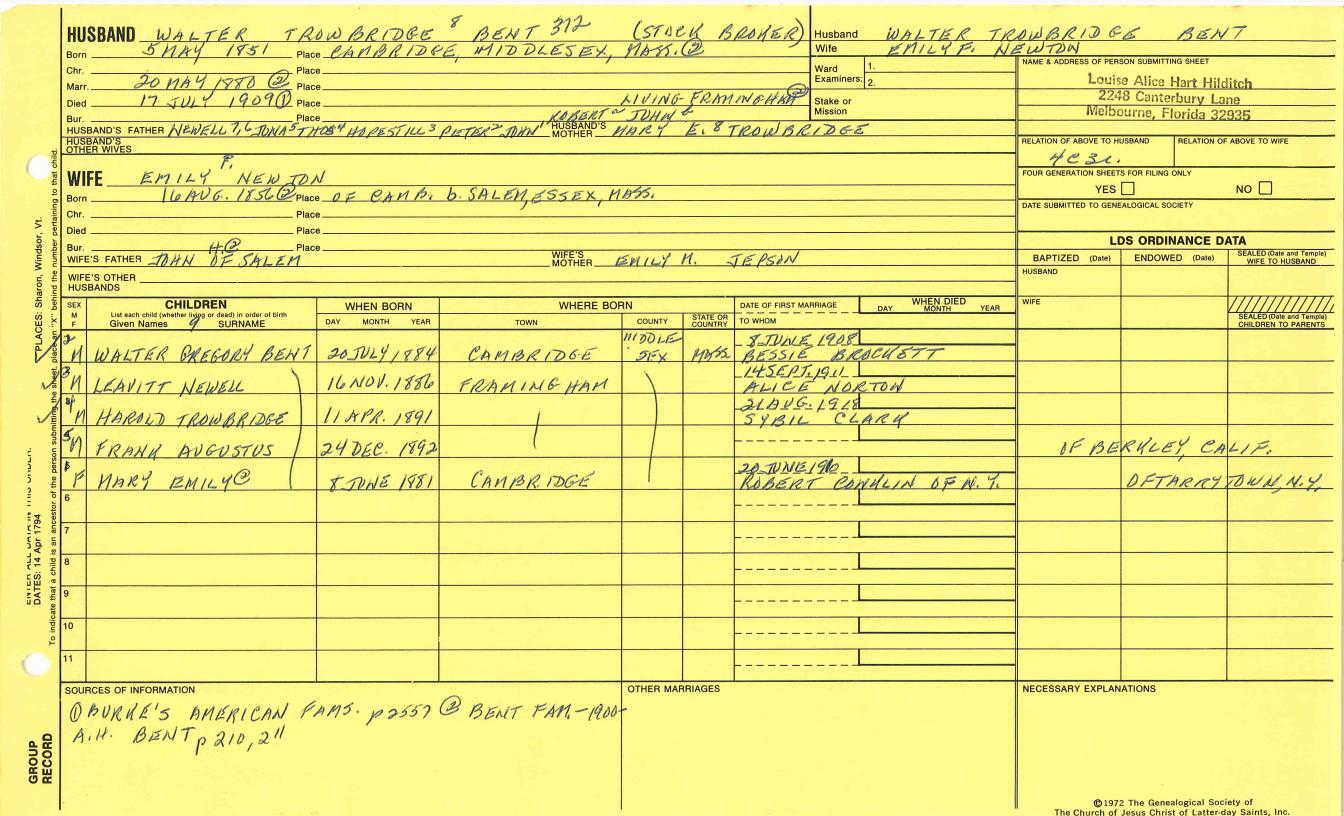 HUSBAND WALTER TROWBRIDGE 8 BENT 312 (STOCK BROKER)
Born 5 MAY 1851 Place CAMBRIDGE, MIDDLESEX, MASS. ②
Chr. Place
Marr. 20 MAY 1880 ② Place
Died 17 JULY 1909 ① Place LIVING FRAMINGHAM ②
Bur. Place ROBERT JOHN
HUSBAND'S FATHER NEWELL 7, 6 JONAS 5 THOS 4 HOPESTILL 3 PETER 2 JOHN 1 HUSBAND'S MOTHER MARY E. 8 TROWBRIDGE
HUSBAND'S OTHER WIVES
Husband WALTER TROWBRIDGE BENT
Wife EMILY F. NEWTON
Ward Examiners: 1.
2.
Stake or Mission
NAME & ADDRESS OF PERSON SUBMITTING SHEET
Louise Alice Hart Hilditch
2248 Canterbury Lane
Melbourne, Florida 32935
RELATION OF ABOVE TO HUSBAND RELATION OF ABOVE TO WIFE
4C3r.
FOUR GENERATION SHEETS FOR FILING ONLY
YES NO
DATE SUBMITTED TO GENEALOGICAL SOCIETY
F.
WIFE EMILY NEWTON
Born 16 AUG. 1856 ② Place OF CAMB. b. SALEM, ESSEX, MASS.
Chr. Place
Died Place
Bur. Place
H. ②
WIFE'S FATHER JOHN OF SALEM WIFE'S MOTHER EMILY M. JEPSON
WIFE'S OTHER HUSBANDS
LDS ORDINANCE DATA
BAPTIZED (Date) ENDOWED (Date) SEALED (Date and Temple) WIFE TO HUSBAND
HUSBAND
WIFE
SEALED (Date and Temple) CHILDREN TO PARENTS
SEX M F CHILDREN WHEN BORN WHERE BORN DATE OF FIRST MARRIAGE WHEN DIED
List each child (whether living or dead) in order of birth
Given Names 9 SURNAME DAY MONTH YEAR TOWN COUNTY STATE OR COUNTRY TO WHOM DAY MONTH YEAR
2 M WALTER GREGORY BENT 20 JULY 1884 CAMBRIDGE MIDDLESEX MASS 8 JUNE 1908 BESSIE BROCKETT
3 M LEAVITT NEWELL 16 NOV. 1886 FRAMINGHAM 14 SEPT. 1911 ALICE NORTON
4 M HAROLD TROWBRIDGE 11 APR. 1891 21 AUG. 1918 SYBIL CLARK
5 M FRANK AUGUSTUS 24 DEC. 1892 OF BERKLEY, CALIF.
F MARY EMILY ② 8 JUNE 1881 CAMBRIDGE 20 JUNE ROBERT CONKLIN OF N.Y. OF TARRYTOWN, N.Y.
6
7
8
9
10
11
SOURCES OF INFORMATION
① BURKE'S AMERICAN FAMS. p 2557 ② BENT FAM.-1900-
A.H. BENT p 210, 211
OTHER MARRIAGES
NECESSARY EXPLANATIONS
©1972 The Genealogical Society of
The Church of Jesus Christ of Latter-day Saints, Inc.
PLACES: Sharon, Windsor, Vt.
DATES: 14 Apr 1794
To indicate that a child is an ancestor of the person submitting the sheet, place an "X" behind the number pertaining to that child.
GROUP RECORD